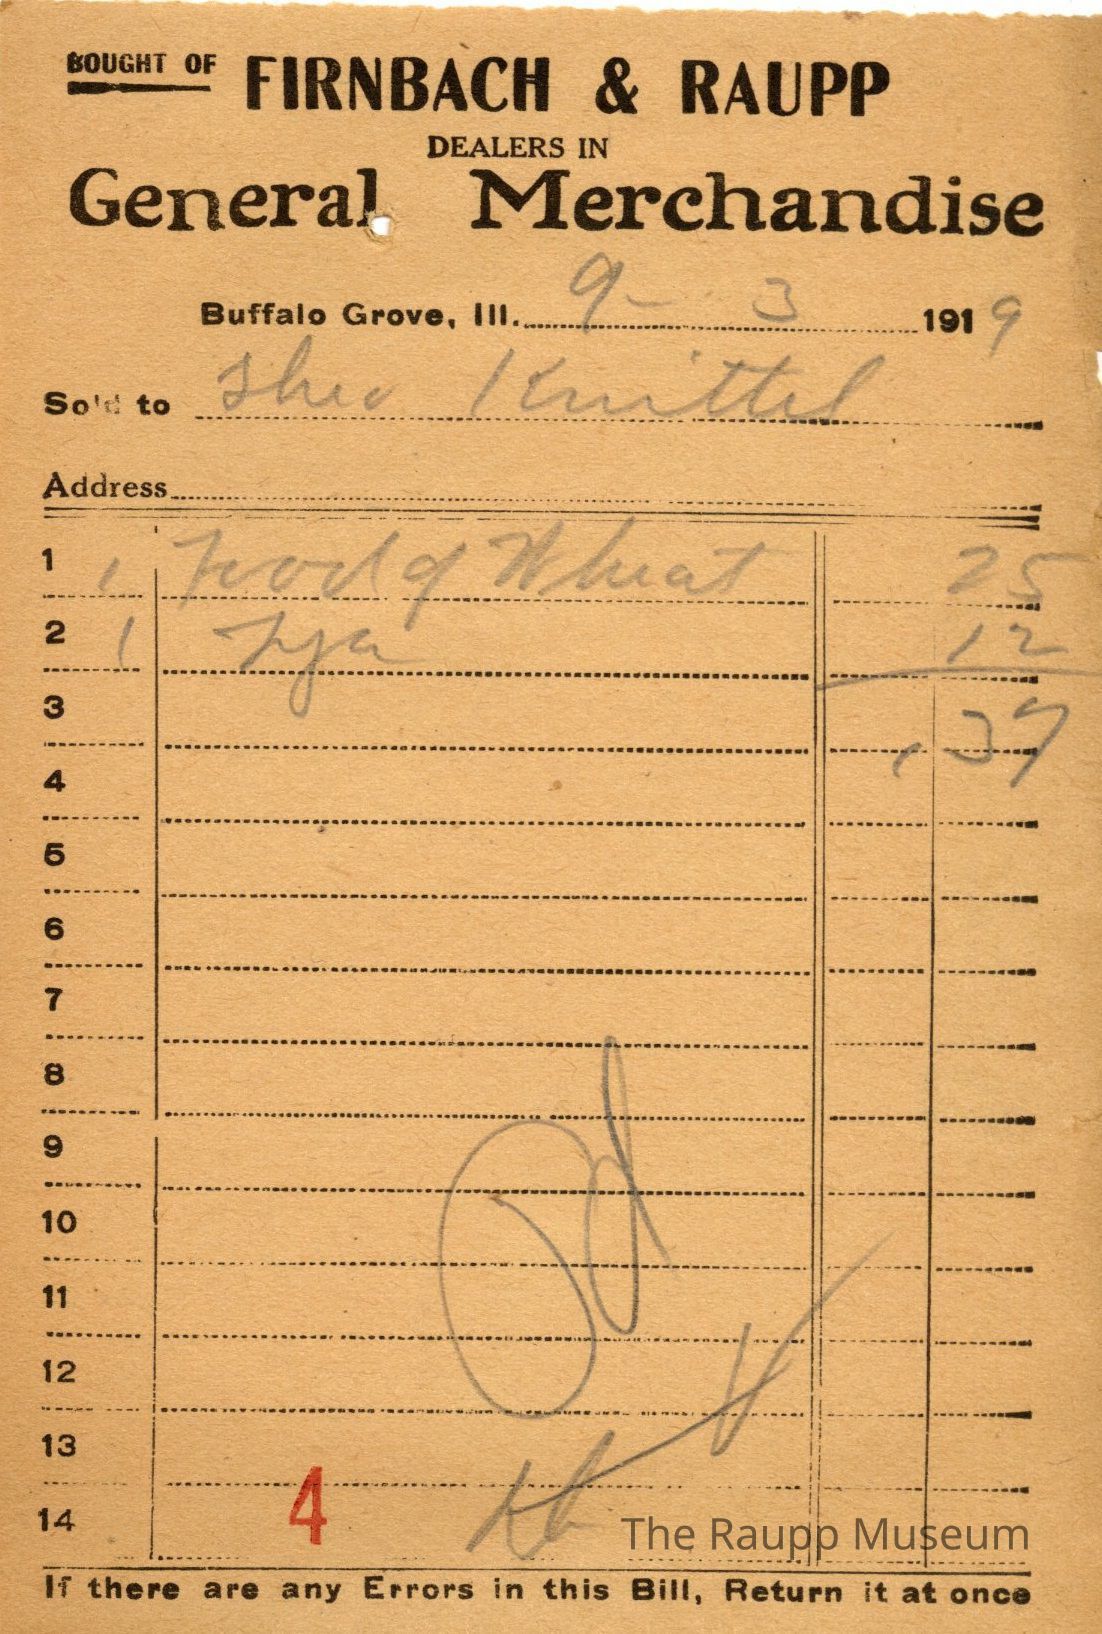 BOUGHT OF FIRNBACH & RAUPP
DEALERS IN
General Merchandise
Buffalo Grove, Ill. 9- 3 1919
Sold to Theo Knittel
Address
1 1 Food of Wheat 25
2 1 12
3 .37
4
5
6
7
8
9
10
11
12
13
14 4
The Raupp Museum
If there are any Errors in this Bill, Return it at once